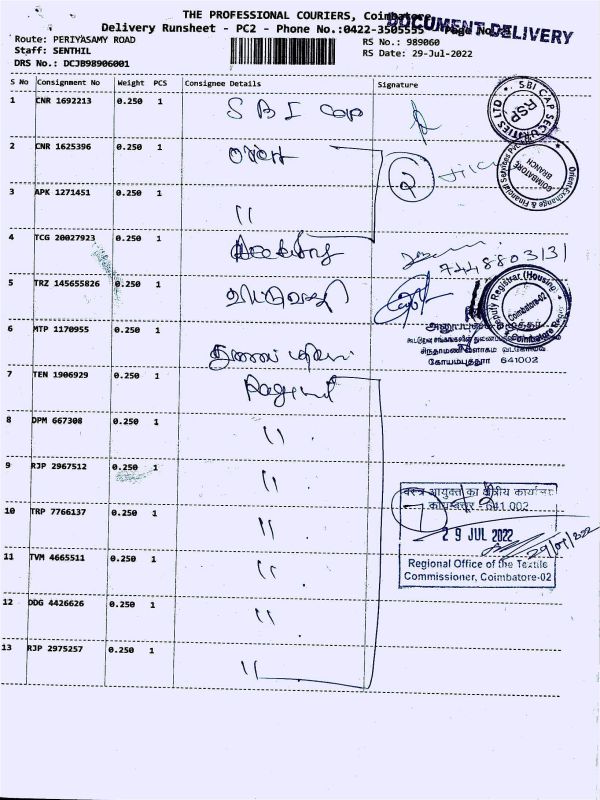 THE PROFESSIONAL COURIERS, Coimbatore
DOCUMENT DELIVERY
Delivery Runsheet - PC2 - Phone No.:0422-3505555 Page No
Route: PERIYASAMY ROAD
RS No.: 989060
Staff: SENTHIL
RS Date: 29-Jul-2022
DRS No.: DCJB98906001
S No Consignment No Weight PCS Consignee Details Signature
1 CNR 1692213 0.250 1 SBI Cap
SBI CAP SECURITIES LTD
RSP
2 CNR 1625396 0.250 1
2
Orient Exchange & Financial Services Pvt
COIMBATORE BRANCH
3 APK 1271451 0.250 1 "
4 TCG 20027923 0.250 1
7448803131
5 TRZ 145655826 0.250 1
Deputy Registrar (Housing)
Coimbatore-02
Coimbatore Region
6 MTP 1170955 0.250 1
சிந்தாமணி வளாகம் வடகோவை
கோயம்புத்தூர் 641002
7 TEN 1906929 0.250 1
8 DPM 667308 0.250 1 "
9 RJP 2967512 0.250 1 "
10 TRP 7766137 0.250 1 "
वस्त्र आयुक्त का क्षेत्रीय कार्यालय
कोयम्बत्तूर - 641 002
29 JUL 2022
29/07/2022
Regional Office of the Textile
Commissioner, Coimbatore-02
11 TVM 4665511 0.250 1 "
12 DDG 4426626 0.250 1 "
13 RJP 2975257 0.250 1 "